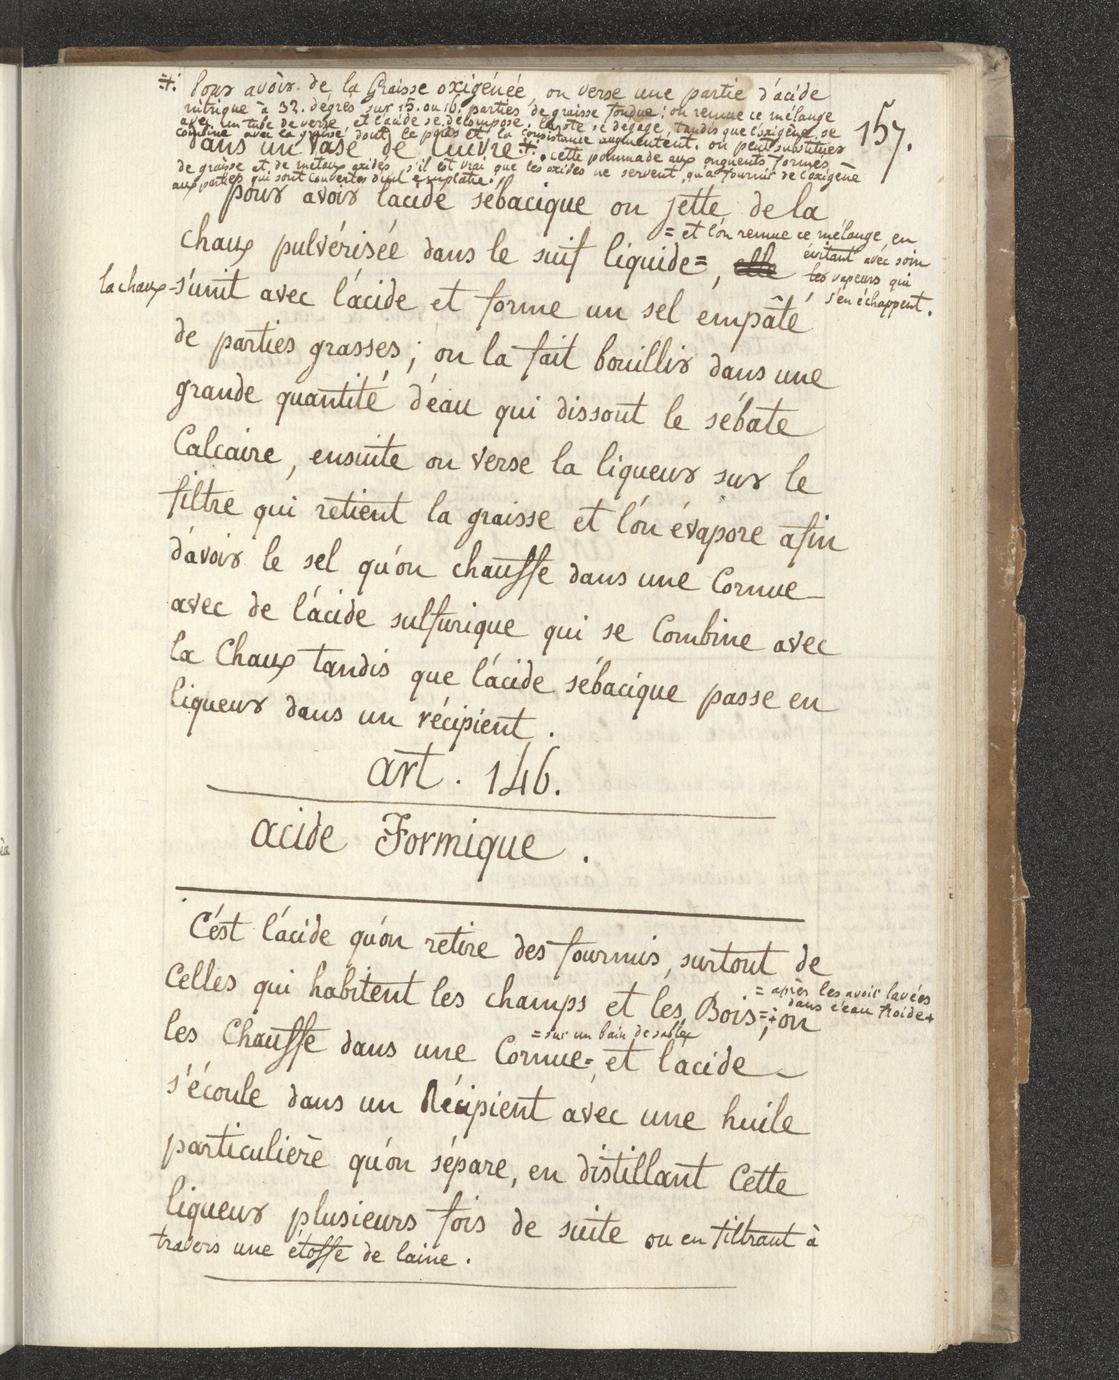 ⁜ Pour avoir de la Graisse oxigénée, on verse une partie d'acide
nitrique à 32. dégrés sur 15. ou 16. parties de graisse fondue; on remue ce mélange
avec un tube de verre, et l'acide se décompose, l'azote se dégage, tandis que l'oxigène se
combine avec la graisse dont le poids et la consistance augmentent. on peut substituer
157.
dans un vase de Cuivre ⁜.
cette pommade aux onguents formés
de graisse et de métaux oxidés, s'il est vrai que les oxides ne servent qu'à fournir de l'oxigène
aux parties qui sont couvertes d'un emplatre.
pour avoir l'acide sébacique on jette de la
chaux pulvérisée dans le suif liquide=, elle
= et l'on remue ce mélange en
évitant avec soin
les vapeurs qui
s'en échappent.
la chaux s'unit avec l'acide et forme un sel empâté
de parties grasses; on la fait bouillir dans une
grande quantité d'éau qui dissout le sébate
Calcaire, ensuite on verse la liqueur sur le
filtre qui retient la graisse et l'on évapore afin
d'avoir le sel qu'on chauffe dans une Cornue
avec de l'acide sulfurique qui se Combine avec
la Chaux tandis que l'acide sébacique passe en
liqueur dans un récipient.
art. 146.
acide Formique.
C'est l'acide qu'on retire des fourmis, surtout de
Celles qui habitent les champs et les Bois=; on
= après les avoir lavées
dans l'eau froide+
les Chauffe dans une Cornue=, et l'acide
= sur un bain de sable
s'écoule dans un Récipient avec une huile
particulière qu'on sépare, en distillant Cette
liqueur plusieurs fois de suite ou en filtrant à
travers une étoffe de laine.